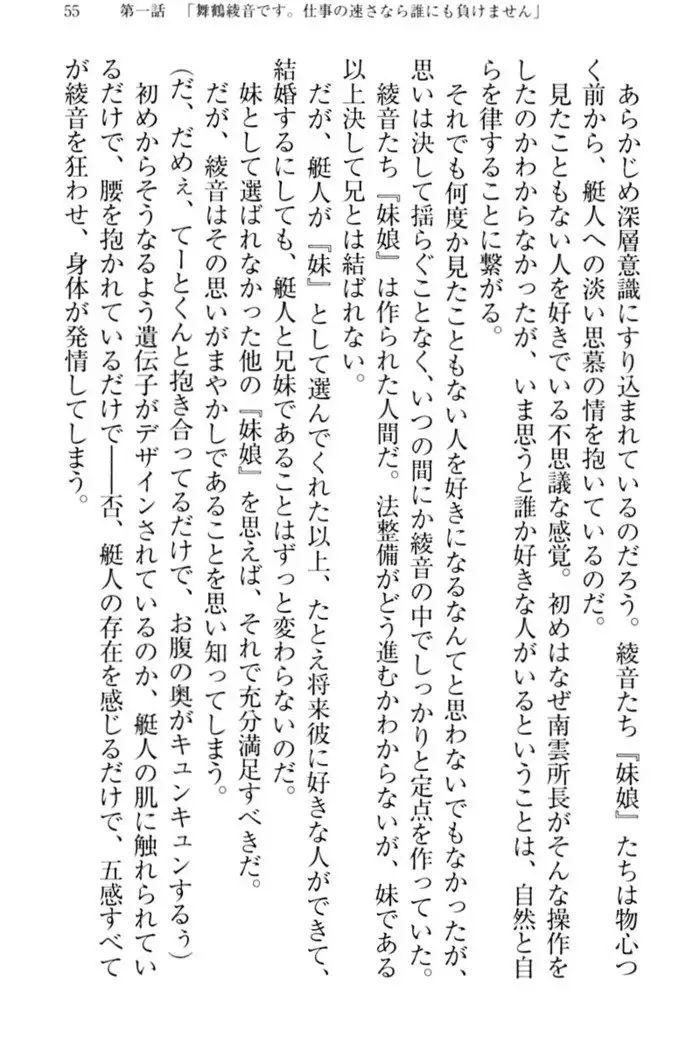 55　第一話　「舞鶴綾音です。仕事の速さなら誰にも負けません」
あらかじめ深層意識にすり込まれているのだろう。綾音たち『妹娘』たちは物心つ
く前から、艇人への淡い思慕の情を抱いているのだ。
見たこともない人を好きでいる不思議な感覚。初めはなぜ南雲所長がそんな操作を
したのかわからなかったが、いま思うと誰か好きな人がいるということは、自然と自
らを律することに繋がる。
それでも何度か見たこともない人を好きになるなんてと思わないでもなかったが、
思いは決して揺らぐことなく、いつの間にか綾音の中でしっかりと定点を作っていた。
綾音たち『妹娘』は作られた人間だ。法整備がどう進むかわからないが、妹である
以上決して兄とは結ばれない。
だが、艇人が『妹』として選んでくれた以上、たとえ将来彼に好きな人ができて、
結婚するにしても、艇人と兄妹であることはずっと変わらないのだ。
妹として選ばれなかった他の『妹娘』を思えば、それで充分満足すべきだ。
だが、綾音はその思いがまやかしであることを思い知ってしまう。
（だ、だめぇ、てーとくんと抱き合ってるだけで、お腹の奥がキュンキュンするぅ）
初めからそうなるよう遺伝子がデザインされているのか、艇人の肌に触れられてい
るだけで、腰を抱かれているだけで――否、艇人の存在を感じるだけで、五感すべて
が綾音を狂わせ、身体が発情してしまう。